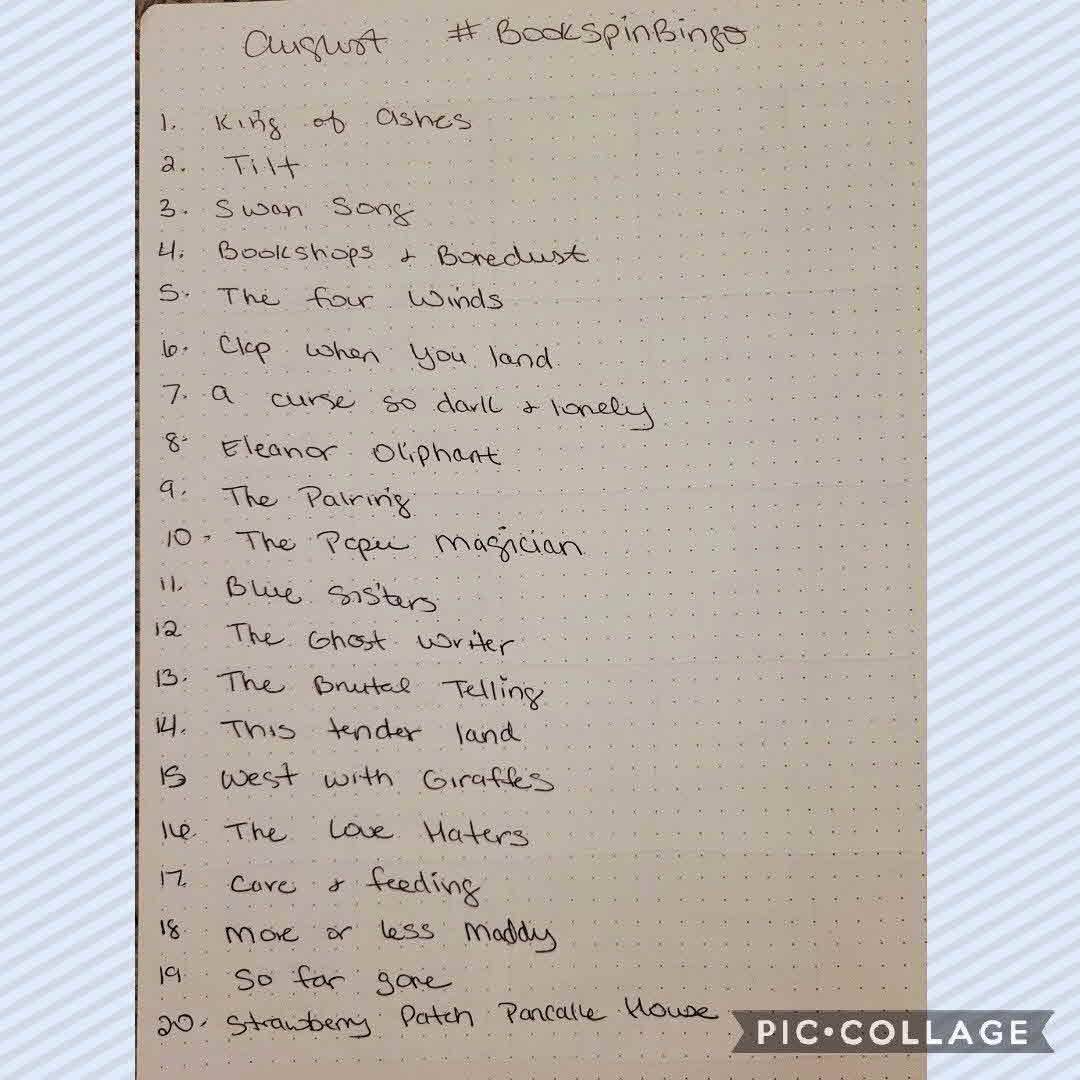 August #BookSpinBingo
1. King of Ashes
2. Tilt
3. Swan Song
4. Bookshops & Bonedust
5. The four Winds
6. Clap when you land
7. A curse so dark & lonely
8. Eleanor Oliphant
9. The Pairing
10. The Paper Magician
11. Blue Sisters
12 The Ghost Writer
13. The Brutal Telling
14. This tender land
15 West with Giraffes
16. The Love Haters
17. Care & feeding
18 More or less Maddy
19 So far gone
20. Strawberry Patch Pancake House
PIC•COLLAGE